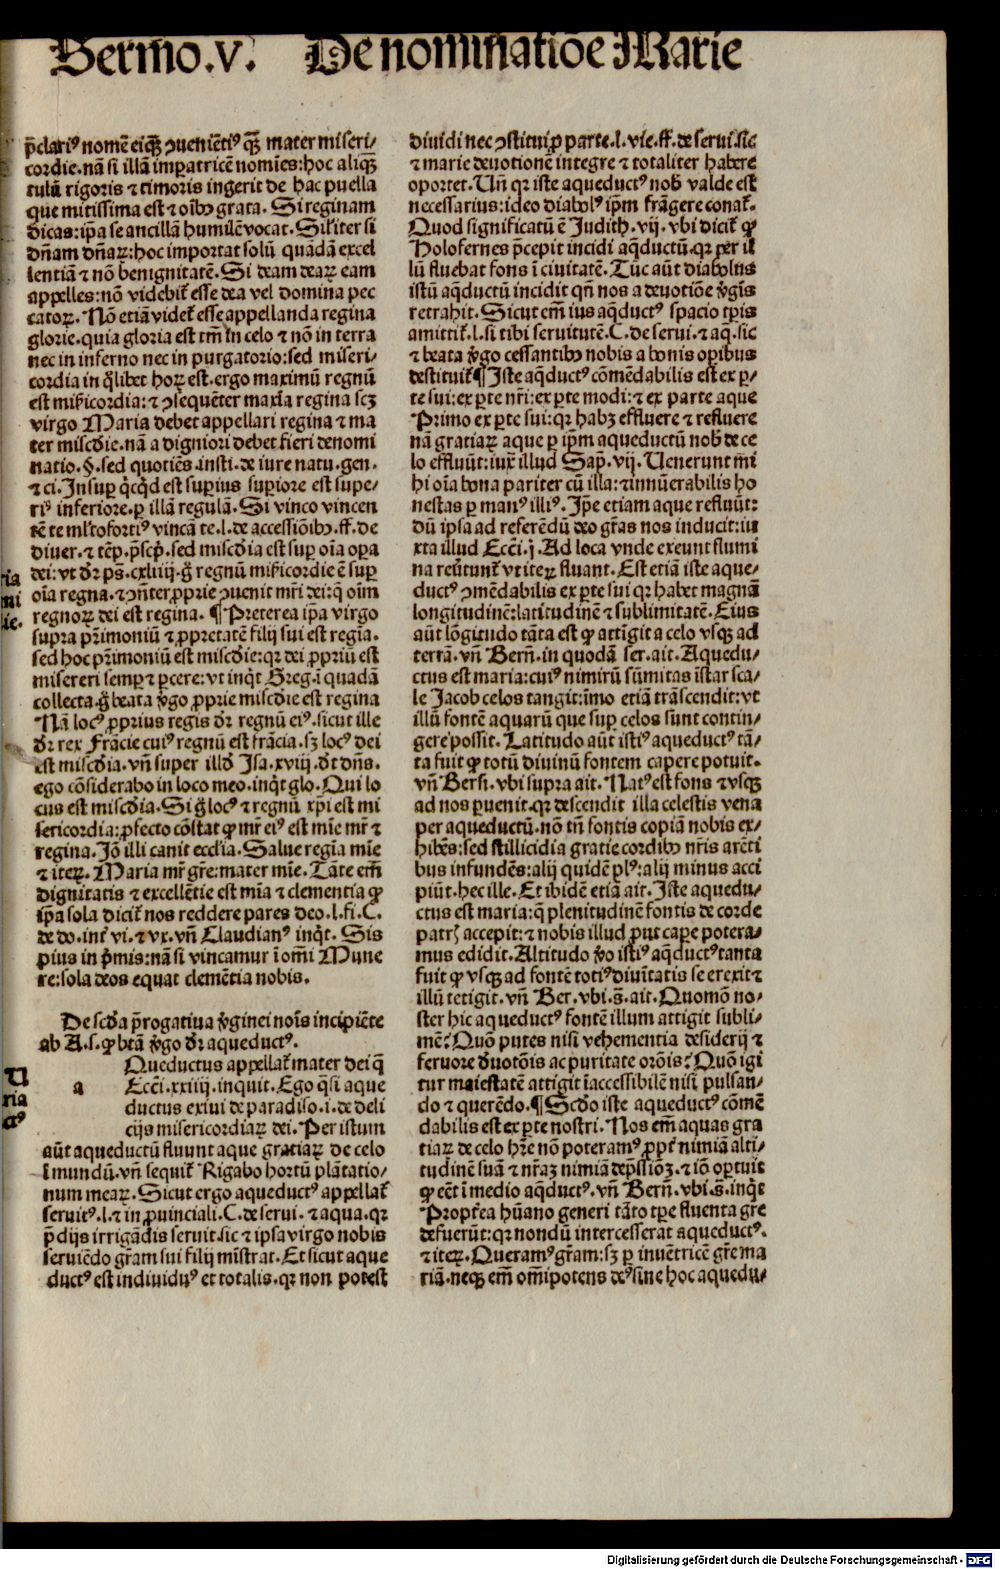 Sermo.v. De nominatiōe Marie
p̄clariꝰ nomē eiq̄ꝫ ꝯueniētiꝰ q̄ꝫ mater miseri-
cordie.nā si illā imꝑatricē nomīes:hoc aliqꝫ
tulū rigoris ⁊ timoris ingerit de hac puella
que mitissima est ⁊ oībꝰ grata. Si reginam
dicas:ip̄a se ancillā humilē vocat. Sil'iter si
dn̄am dn̄aꝝ:hoc importat solū quādā excel
lentiā ⁊ nō benignitatē. Si deam deaꝝ eam
appelles:nō videbit̄ esse dea vel domina pec
catoꝝ. Nō etiā videt̄ esse appellanda regina
glorie.quia gloria est tm̄ in celo ⁊ nō in terra
nec in inferno nec in purgatorio:sed miseri-
cordia in q̄libet hoꝝ est.ergo maximū regnū
est mīẜicordia:⁊ ꝯsequēter maxīa regina scꝫ
virgo Maria debet appellari regina ⁊ ma
ter misc̄die.nā a digniori debet fieri denomi
natio.§.sed quotiēs.insti.de iure natu.gen.
⁊ ci. Insuꝑ q̇cq̇d est suꝑius suꝑiore est supe-
riꝰ inferiore.ꝑ illā regulā. Si vinco vincen
tē te ml'tofortiꝰ vincā te.l.de accessiōibꝰ.ff.de
diuer.⁊ tēꝑ.p̄scp̄.sed misc̄dia est suꝑ oīa oꝑa
dei:vt dr̄ ps̄.cxliiij.g̊ regnū mīẜicordie ē suꝑ
oīa regna.⁊ ꝯn̄ter ꝓprie ꝯuenit mr̄i dei:q̄ oīm
regnoꝝ dei est regina. ¶ Preterea ip̄a virgo
supra pr̄imoniū ⁊ ꝓpretatē filij sui est regīa.
sed hoc pr̄imoniū est misc̄die:qꝛ dei ꝓpriū est
misereri semꝑ ⁊ ꝑcere:vt inq̇t Greg.ī quadā
collecta.g̊ beata v̊go ꝓprie misc̄die est regina
Nā locꝰ ꝓprius regis dr̄ regnū eiꝰ.sicut ille
dr̄ rex Frācie cuiꝰ regnū est frācia.sꝫ locꝰ dei
est misc̄dia.vn̄ super illd̓ Isa.xviij.dt̄ dn̄s.
ego cōsiderabo in loco meo.inq̇t glo. Qui lo
cus est misc̄dia. Si g̊ locꝰ ⁊ regnū xp̄i est mi
sericordia:ꝓfecto cōstat ꝙ mr̄ eiꝰ est mīe mr̄ ⁊
regina. Iō illi canit eccl'ia. Salue regīa mīe
⁊ iteꝝ. Maria mr̄ gr̄e:mater mīe. Tāte em̄
dignitatis ⁊ excellētie est mīa ⁊ clementia ꝙ
ip̄a sola dicit̄ nos reddere pares deo.l.fi. C.
de do.int̄ vi.⁊ vx.vn̄ Claudianꝰ inq̇t. Sis
pius in p̄mis:nā si vincamur ī omī Mune
re:sola deos equat clemētia nobis.
De scd̓a p̄rogatiua v̊ginei noīs incipiēte
ab A.s.ꝙ btā v̊go dr̄ aqueductꝰ.
a
Queductus appellat̄ mater dei q̄
Ecc̄i.xxiiij.inquit. Ego q̄si aque
ductus exiui de paradiso.i.de deli
cijs misericordiaꝝ dei. Per istum
aūt aqueductū fluunt aque gratiaꝝ de celo
ī mundū.vn̄ sequit̄ Rigabo hortū plātatio-
num meaꝝ. Sicut ergo aqueductꝰ appellat̄
seruitꝰ.l.⁊ in ꝓuinciali.C.de serui.⁊ aqua.qꝛ
p̄dijs irrigādis seruit.sic ⁊ ipsa virgo nobis
seruiēdo gr̄am sui filij mīstrat. Et sicut aque
ductꝰ est indiuiduꝰ et totalis.qꝛ non potest
diuidi nec ꝯstitui ꝓ parte.l.vie.ff.de serui.sic
⁊ marie deuotionē integre ⁊ totaliter habere
oportet. Un̄ qꝛ iste aqueductꝰ nob̓ valde est
necessarius:ideo diabolꝰ ip̄m frāgere conat̄.
Quod significatū ē Judith.vij.vbi dicit̄ ꝙ
Holofernes p̄cepit incidi aq̄ductū.qꝛ per il
lū fluebat fons ī ciuitatē. Tūc aūt diabolus
istū aq̄ductū incidit qn̄ nos a deuotiōe v̊gīs
retrahit. Sicut em̄ ius aq̄ductꝰ spacio tp̄ris
amittit̄.l.si tibi seruitutē.C.de serui.⁊ aq.sic
⁊ beata v̊go cessantibꝰ nobis a bonis oꝑibus
destituit̄ ¶ Iste aq̄ductꝰ cōmēdabilis est ex ꝑ-
te sui:ex ꝑte nr̄i:ex ꝑte modi:⁊ ex parte aque
Primo ex ꝑte sui:qꝛ habꝫ effluere ⁊ refluere
nā gratiaꝝ aque ꝑ ip̄m aqueductū nob̓ de ce
lo effluūt:iux̄ illud Sap̄.vij. Uenerunt mi
hi oīa bona pariter cū illa:⁊ innūerabilis ho
nestas ꝑ manꝰ illiꝰ. Ip̄e etiam aque refluūt:
dū ipsa ad referēdū deo gr̄as nos inducit:iu
xta illud Ecc̄i.j. Ad loca vnde exeunt flumi
na reūtunt̄ vt iteꝝ fluant. Est etiā iste aque-
ductꝰ ꝯmēdabilis ex ꝑte sui qꝛ habet magnā
longitudinē:latitudinē ⁊ sublimitatē. Eius
aūt lōgitudo tāta est ꝙ attīgit a celo vsqꝫ ad
terrā.vn̄ Bern̄.in quodā ser.ait. Aquedu-
ctus est maria:cuiꝰ nimirū sūmitas īstar sca-
le Jacob celos tangit:īmo etiā trāscendit:vt
illū fontē aquarū que suꝑ celos sunt contin-
gere possit. Latitudo aūt istiꝰ aqueductꝰ tā-
ta fuit ꝙ totū diuinū fontem capere potuit.
vn̄ Bern̄.vbi supra ait. Natꝰ est fons ⁊ vsqꝫ
ad nos ꝑuenit.qꝛ descendit illa celestis vena
per aqueductū.nō tn̄ fontis copiā nobis ex-
hibēs:sed stillicidia gratie cordibꝰ nr̄is arēti
bus infundēs:alij quidē plꝰ:alij minus acci
piūt.hec ille. Et ibidē etiā ait. Iste aquedu-
ctus est maria:q̄ plenitudinē fontis de corde
patrꝭ accepit:⁊ nobis illud ꝓut caꝑe potera-
mus edidit. Altitudo v̊o istiꝰ aq̄ductꝰ tanta
fuit ꝙ vsqꝫ ad fontē totiꝰ diuītatis se erexit ⁊
illū tetigit.vn̄ Ber.vbi.s̄.ait. Quomō no-
ster hic aqueductꝰ fontē illum attigit subli-
mē: Quō putes nisi vehementia desiderij ⁊
feruore d̓uotōis ac puritate orōis: Quō igi
tur maiestatē attigit īaccessibilē nisi pulsan-
do ⁊ querēdo. ¶ Scd̓o iste aqueductꝰ cōmē
dabilis est ex ꝑte nostri. Nos em̄ aquas gra
tiaꝝ de celo hr̄e nō poteramꝰ ꝓpt̄ nimiā alti-
tudinē suā ⁊ nr̄aꝫ nimiā dep̄ssiōꝫ.⁊ iō oꝑtuit
ꝙ eēt ī medio aq̄ductꝰ.vn̄ Bern̄.vbi.s̄.inq̇t
Propt̄ea hūano generi tāto tꝑe fluenta gr̄e
defuerūt:qꝛ nondū intercesserat aqueductꝰ.
⁊ iteꝝ. Queramꝰ gr̄am:sꝫ ꝑ inuētricē gr̄e ma
riā.neqꝫ em̄ om̄ipotens deꝰ sine hoc aquedu-
Digitalisierung gefördert durch die Deutsche Forschungsgemeinschaft - DFG